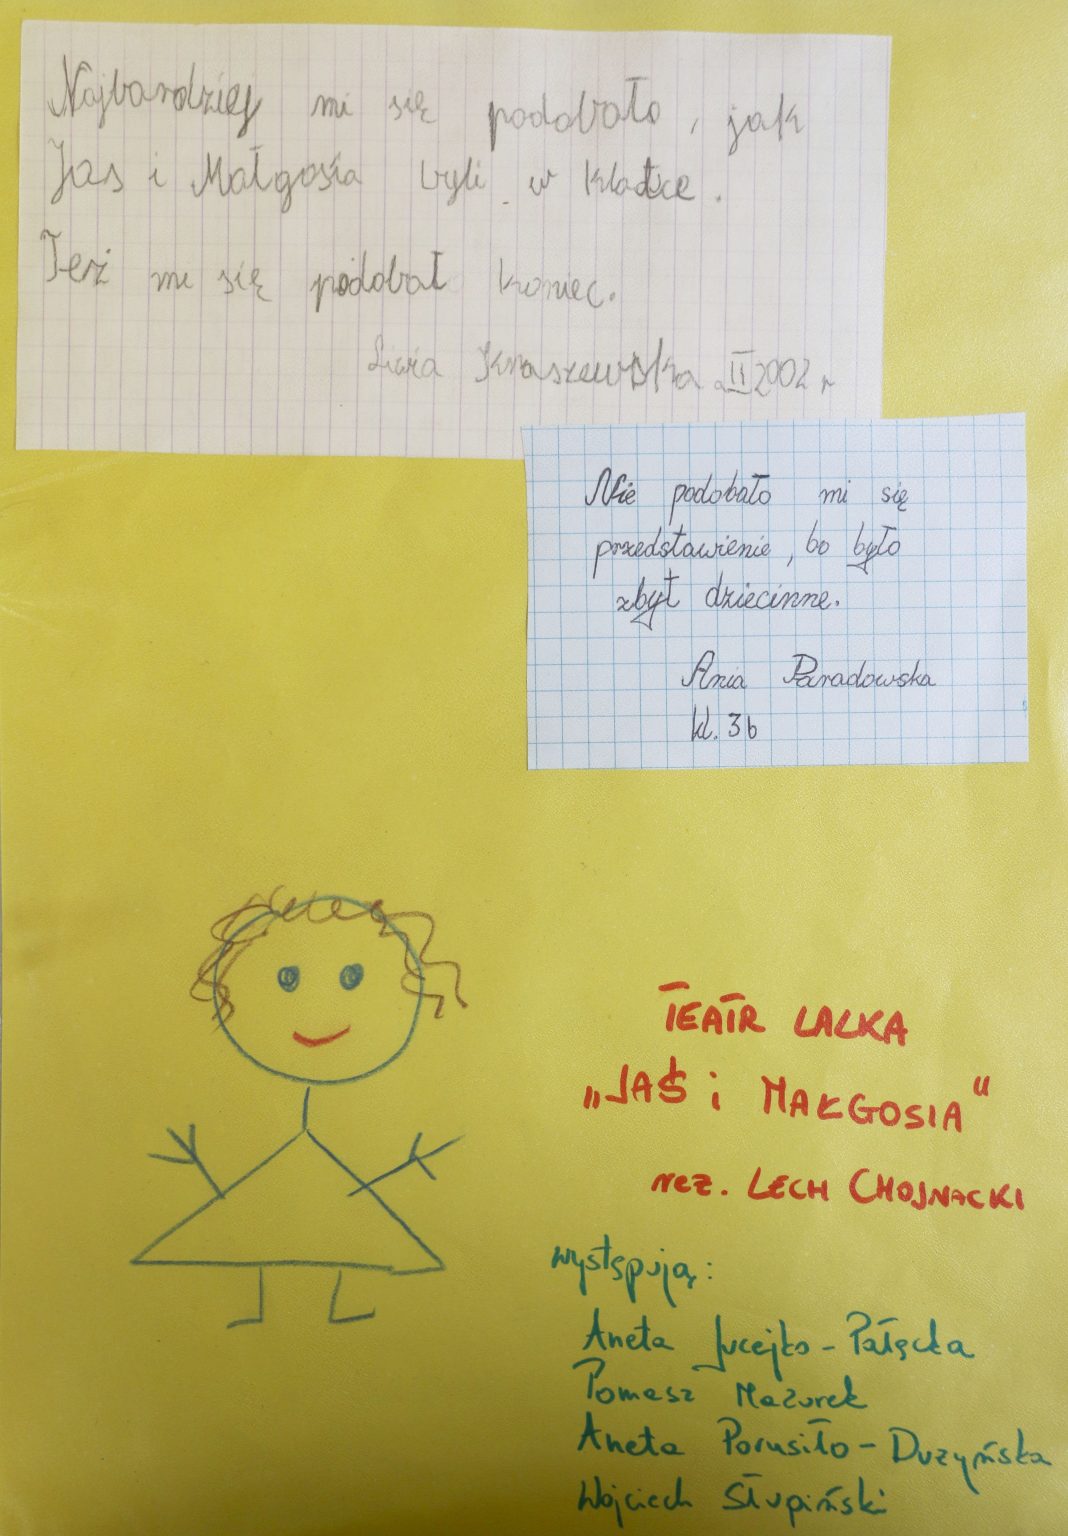 Najbardziej mi się podobało, jak
Jaś i Małgosia byli w klatce.
Też mi się podobał koniec.
Liwia Kraszewska II 2002 r
Nie podobało mi się
przedstawienie, bo było
zbyt dziecinne.
Ania Paradowska
kl. 3b
TEATR LALKA
„JAŚ i MAŁGOSIA"
reż. LECH CHOJNACKI
występują:
Aneta Jucejko-Pałęcka
Tomasz Mazurek
Aneta Porusiło-Dużyńska
Wojciech Słupiński